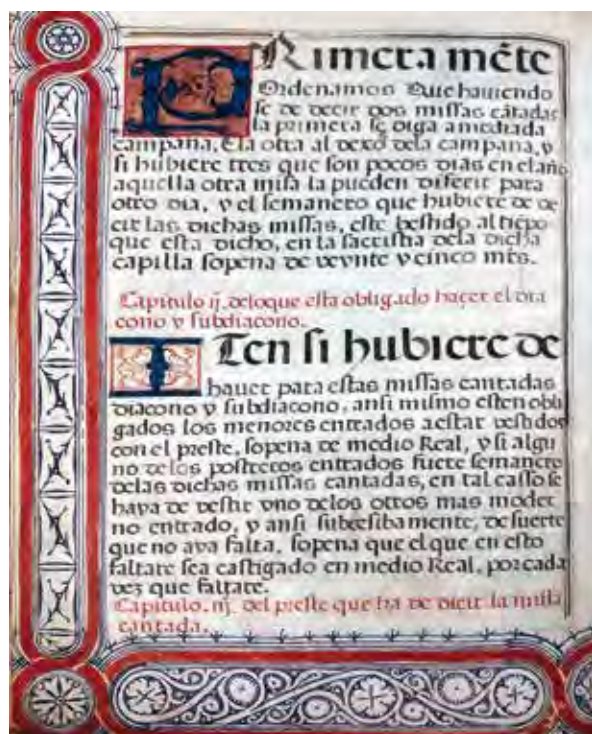 PRimera mẽte
Ordenamos Que hauiendo
se de decir dos missas cãtadas
la primera se diga a mediada
campana, E la otra al dexo dela campana, y
si hubiere tres que son pocos dias en el año
aquella otra misa la pueden diferir para
otro dia, y el semanero que hubiere de de
cir las dichas missas, este bestido al tiẽpo
que esta dicho, en la sacristia dela dicha
capilla sopena de veynte y cinco mrs.
Capitulo ij. deloque esta obligado hacer el dia
cono y subdiacono.
ITen si hubiere de
hauer para estas missas cantadas
diacono y subdiacono, ansi mismo esten obli
gados los menores entrados a estar bestidos
con el preste, sopena de medio Real, y si algu
no delos postreros entrados fuere semanero
delas dichas missas cantadas, en tal casso se
haya de vestir vno delos otros mas moder
no entrado, y ansi subcesibamente, de suerte
que no aya falta, sopena que el que en esto
faltare sea castigado en medio Real, por cada
vez que faltare.
Capitulo. iij. del preste que ha de dicir la missa
cantada.